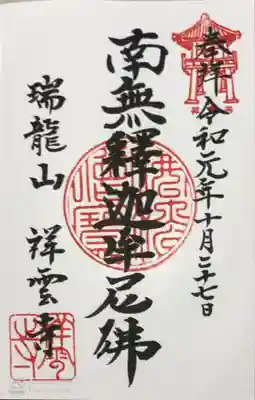 奉拝 令和元年十月二十七日
南無釋迦牟尼佛
瑞龍山 祥雲寺